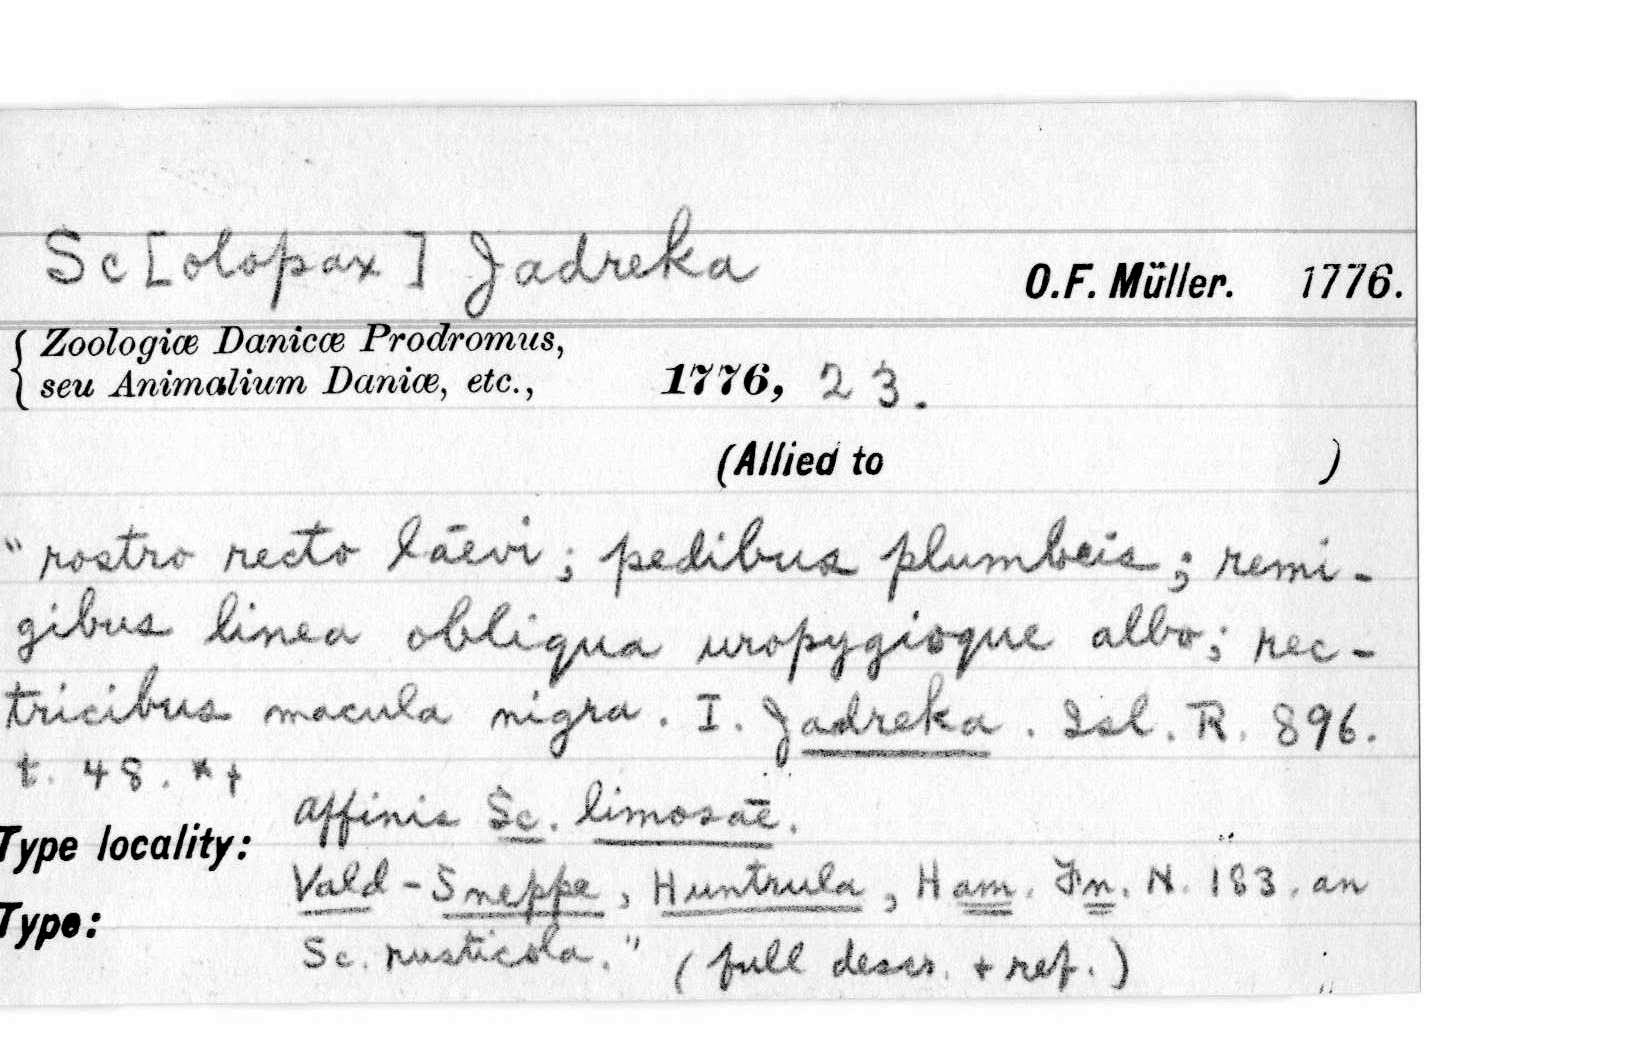 Sc[olopax] Jadreka O.F. Müller. 1776.
Zoologiæ Danicæ Prodromus,
seu Animalium Daniæ, etc., 1776, 23.
(Allied to )
"rostro recto lāevi; pedibus plumbeis; remi-
gibus linea obliqua uropygioque albo; rec-
tricibus macula nigra. I. Jadreka. Isl. R. 896.
t. 48. *†
affinis Sc. limosāē.
Type locality:
Vald-Sneppe, Huntrula, Ham. Fn. N. 183. an
Type:
Sc. rusticola." (full descr. + ref.)